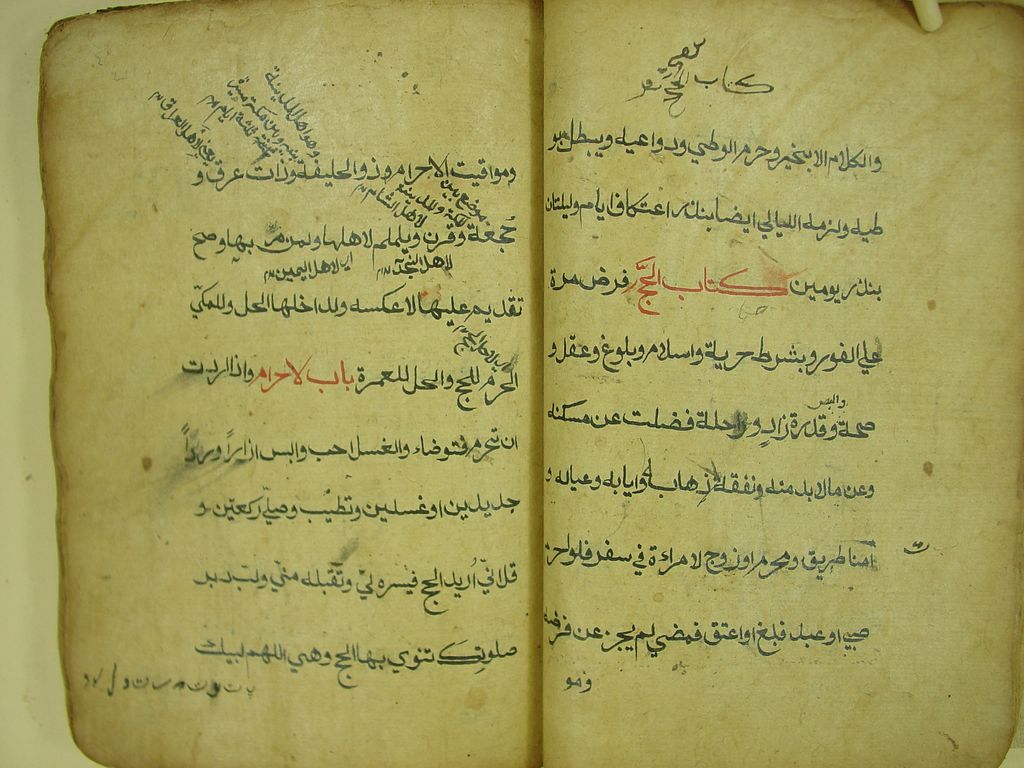 كتاب الحج
والكلام الا بخير وحرم الوطي ودواعيه ويبطل بو
طيه ولزمه الليالي ايضا بنذر اعتكاف ايام وليلتان
بنذر يومين كتاب الحَجِّ فرض مرة
علي الفور وبشرط حرية واسلام وبلوغ وعقل و
صحة وقدرة زادٍ وراحلة فضلت عن مسكنه
وعن ما لا بد منه ونفقة ذهابه وايابه وعياله و
امن طريق ومحرم او زوج لامراءة في سفر فلو احرم
صبي او عبد فبلغ او اعتق فمضي لم يجز عن فرضه
ومو
وهو اهل المدينة
لاهل العراق
ومواقيت الاحرام وذو الحليفة وذات عرق و
موضع بين مكة والمدينة
لاهل الشام
جُحفة وقرن ويلملم لاهلها ولمن مر بها وصح
لاهل النجد
لاهل اليمن
تقديم عليها لا عكسه ولداخلها الحل وللمكيّ
الحرم للحج والحل للعمرة باب لاحرام واذا اردت
ان تحرم فتوضاء والغسل احب والبس ازاراً ورداً
جديدين او غسلين وتطيّب وصلّي ركعتين و
قل انّي اُريد الحج فيسره ليّ وتقبله منّي ولب دبر
صلوتك تنوي بها الحج وهي اللهم لبيك